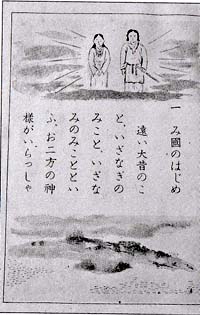 一 み國のはじめ
遠い大昔のこ
と、いざなぎの
みこと、いざな
みのみことゝい
ふ、お二方の神
様がいらっしゃ